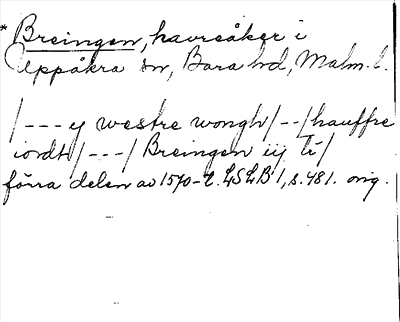 * Breingen, havreåker i
Uppåkra sn, Bara hd, Malm. l.
/--- ej westre wongh/--/hauffre
iordt/---/ Breingen iij tr/
förra delen av 1570-t. LSLB 1, s. 481. orig.